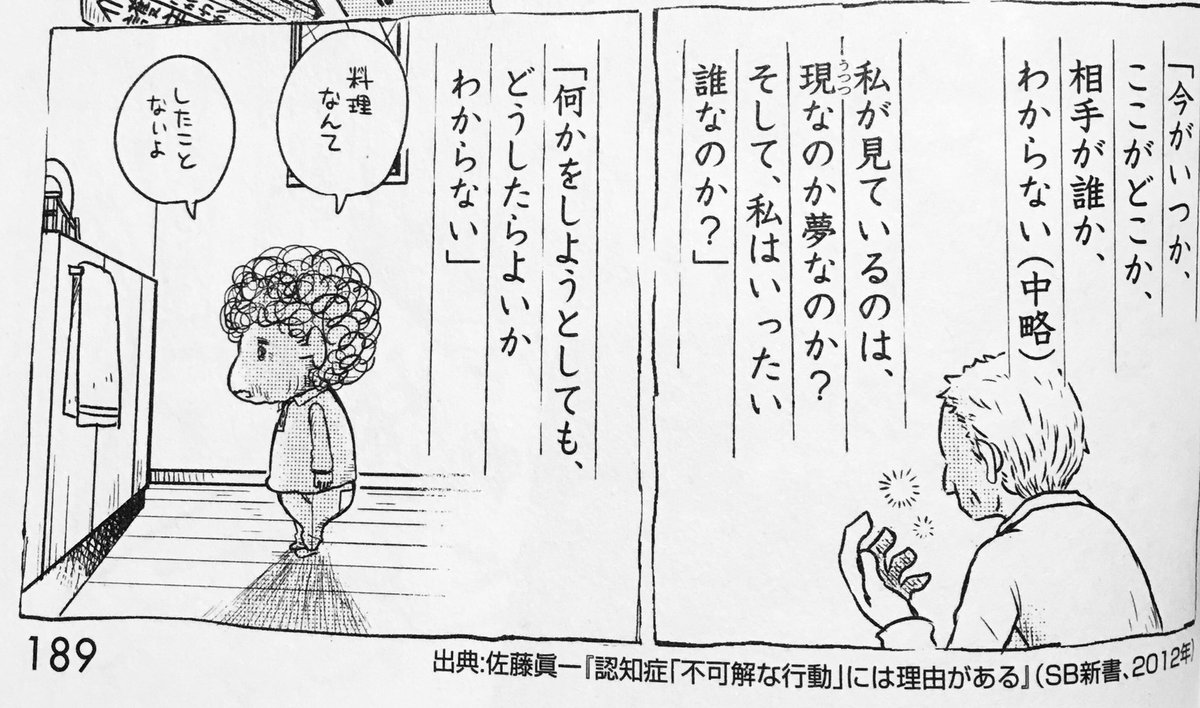 「今がいつか、
ここがどこか、
相手が誰か、
わからない(中略)
私が見ているのは、
現なのか夢なのか?
うつつ
そして、私はいったい
誰なのか?」
「何かをしようとしても、
どうしたらよいか
わからない」
料理
なんて
したこと
ないよ
189
出典:佐藤眞一『認知症「不可解な行動」には理由がある』(SB新書、2012年)